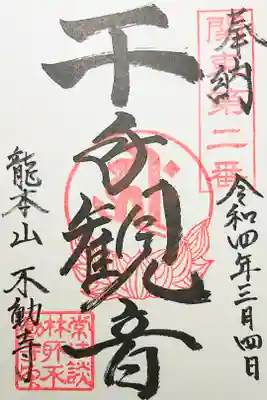 奉納
関東第二番
令和四年三月四日
千手観音
龍本山 不動寺
常談
林所不
動寺印